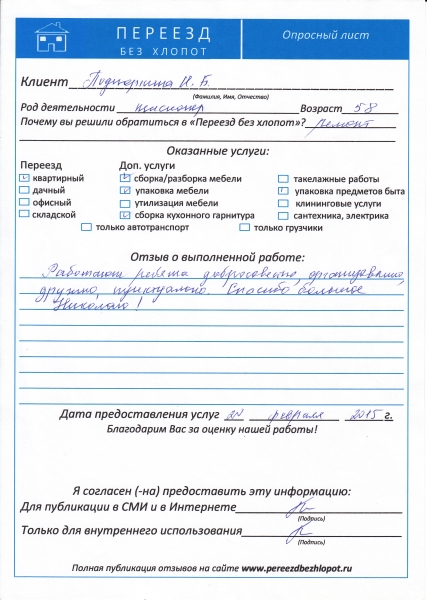 ПЕРЕЕЗД
БЕЗ ХЛОПОТ
Опросный лист
Клиент И. Б.
(Фамилия, Имя, Отчество)
Род деятельности пенсионер Возраст 58
Почему вы решили обратиться в «Переезд без хлопот»? Ремонт
Оказанные услуги:
Переезд
квартирный
дачный
офисный
складской
Доп. услуги
сборка/разборка мебели
упаковка мебели
утилизация мебели
сборка кухонного гарнитура
такелажные работы
упаковка предметов быта
клининговые услуги
сантехника, электрика
только автотранспорт
только грузчики
Отзыв о выполненной работе:
Работают ребята добросовестно, организованно,
дружно, пунктуально. Спасибо большое
Николаю!
Дата предоставления услуг февраля 2015 г.
Благодарим Вас за оценку нашей работы!
Я согласен (-на) предоставить эту информацию:
Для публикации в СМИ и в Интернете
(Подпись)
Только для внутреннего использования
(Подпись)
Полная публикация отзывов на сайте www.pereezdbezhlopot.ru